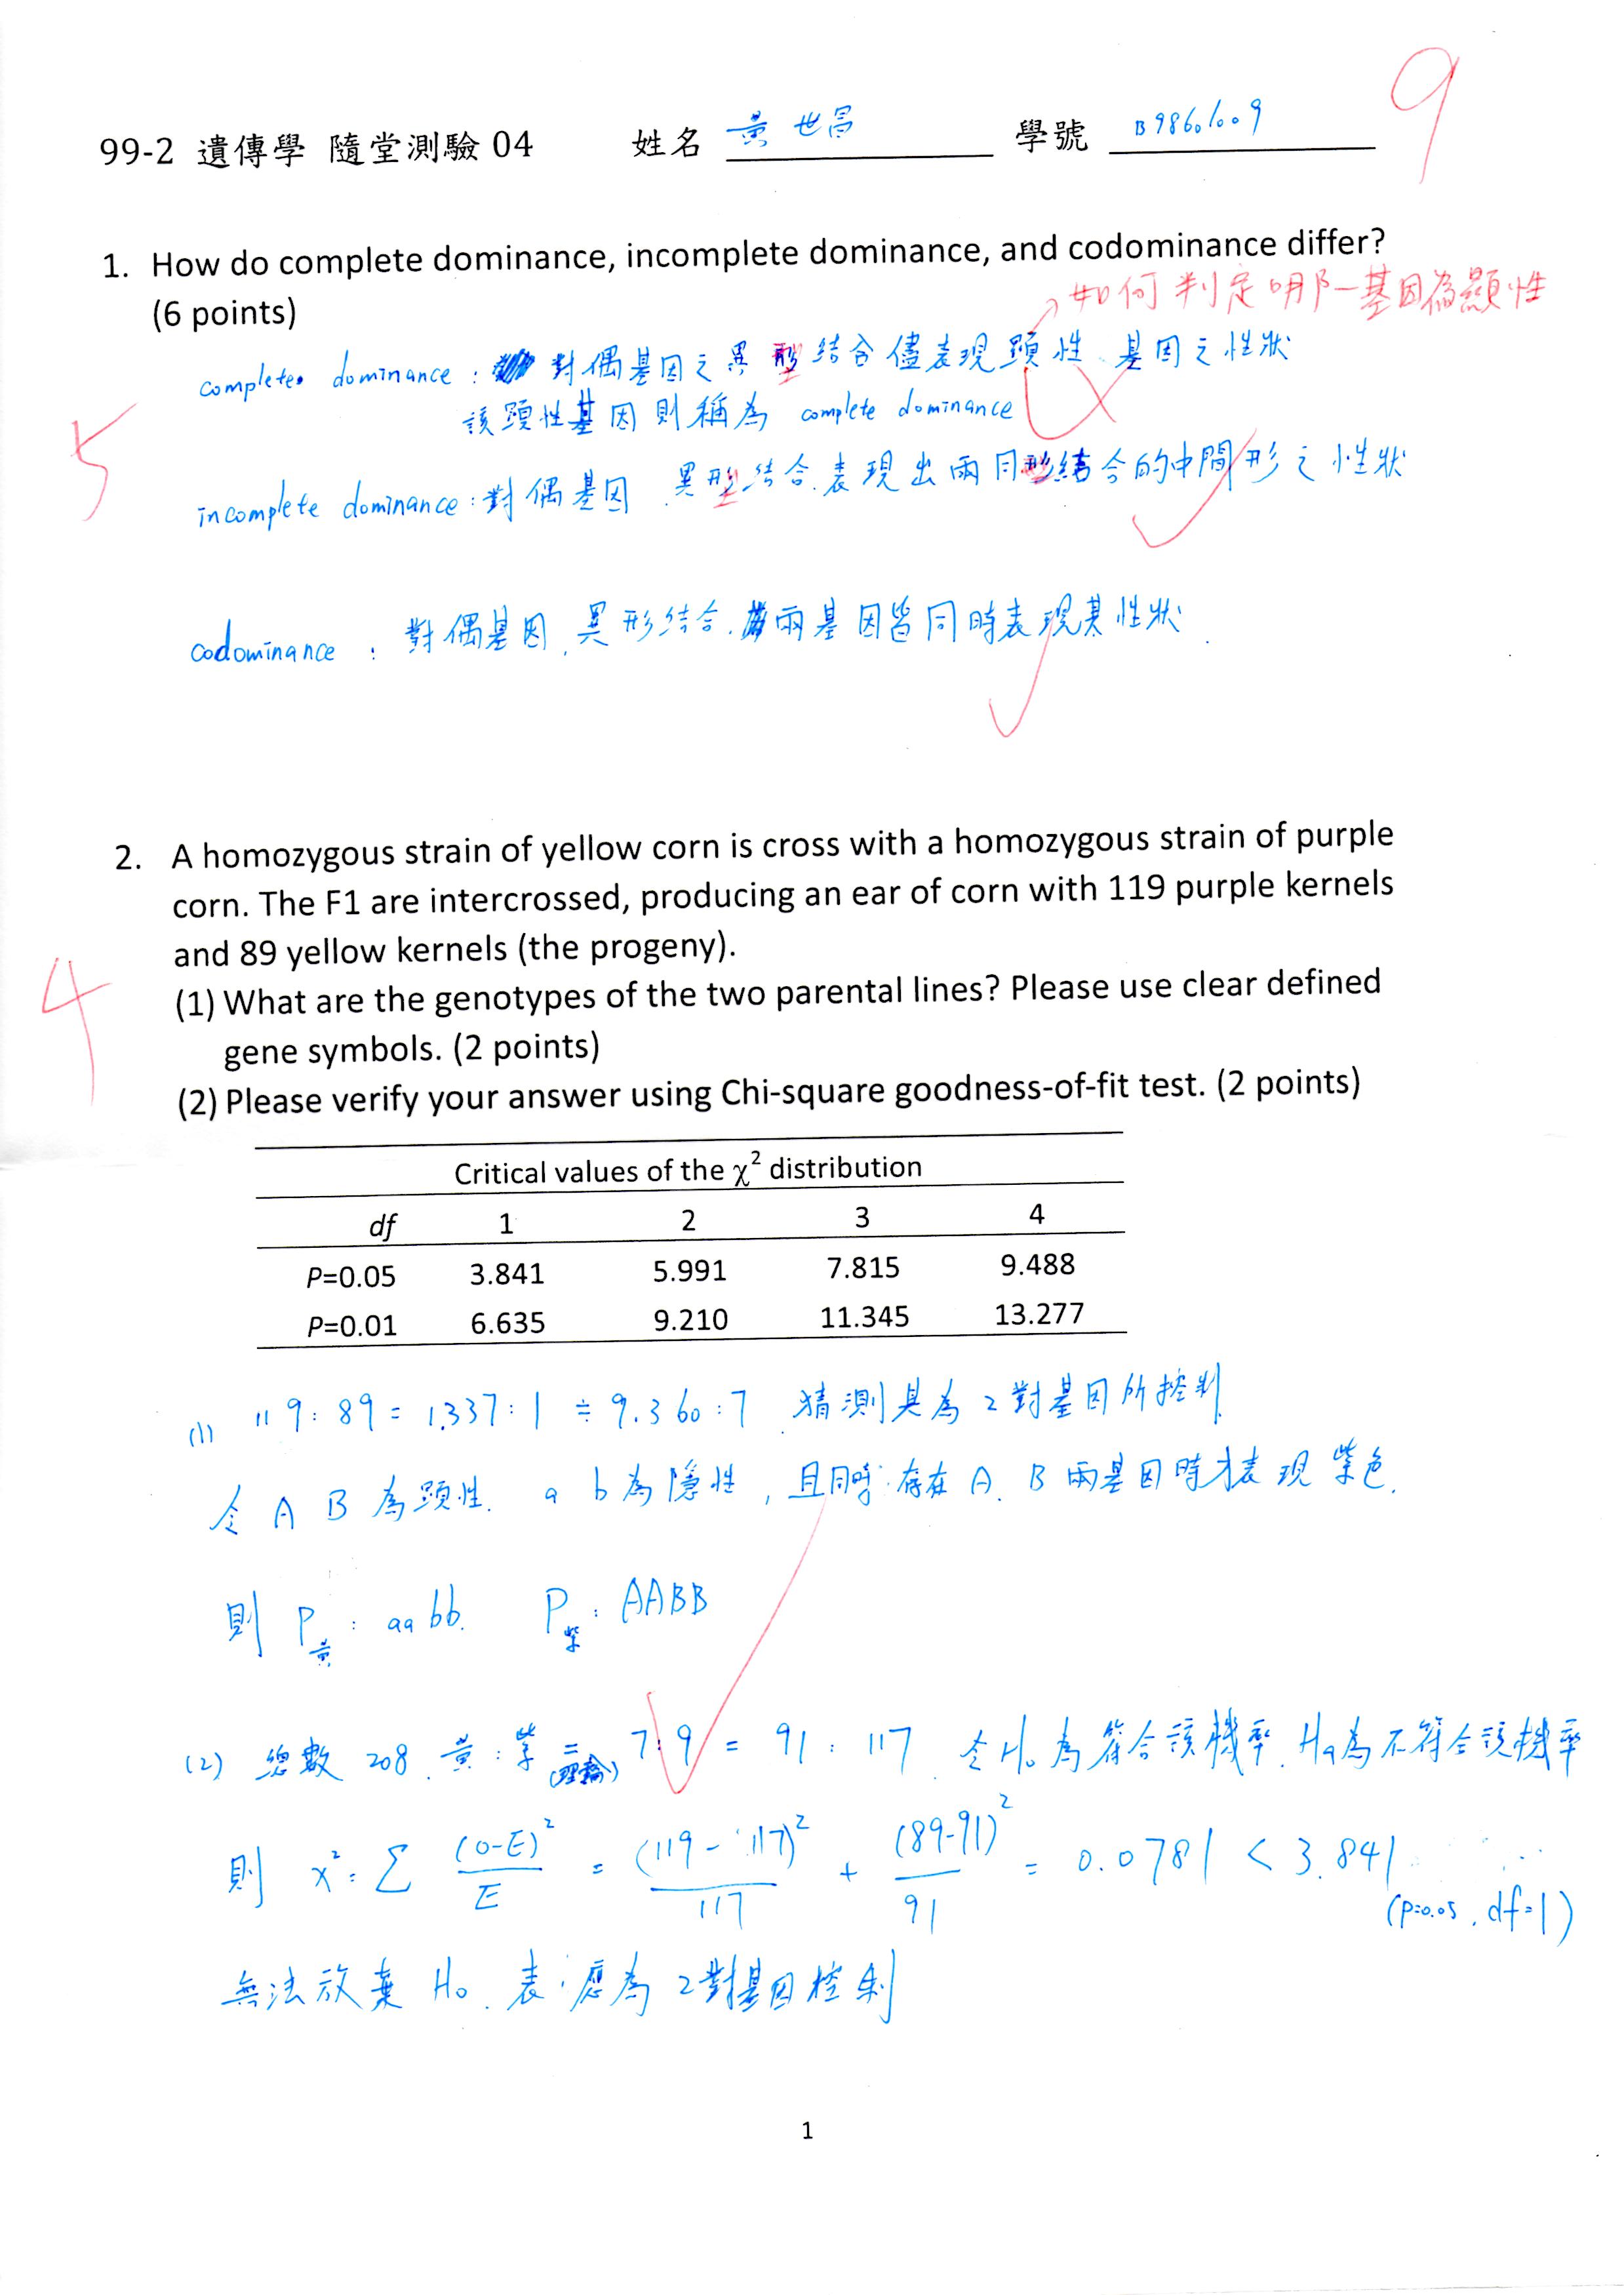 9
99-2 遺傳學 隨堂測驗 04 姓名 黃世昌 學號 B98601009
1. How do complete dominance, incomplete dominance, and codominance differ?
(6 points)
如何判定哪一基因為顯性
complete dominance : 對偶基因之異型結合僅表現顯性基因之性狀
該顯性基因則稱為 complete dominance
5
incomplete dominance : 對偶基因 異型結合表現出兩同型結合的中間形之性狀
codominance : 對偶基因 異形結合 兩基因皆同時表現其性狀.
2. A homozygous strain of yellow corn is cross with a homozygous strain of purple
corn. The F1 are intercrossed, producing an ear of corn with 119 purple kernels
and 89 yellow kernels (the progeny).
4
(1) What are the genotypes of the two parental lines? Please use clear defined
gene symbols. (2 points)
(2) Please verify your answer using Chi-square goodness-of-fit test. (2 points)
Critical values of the χ² distribution
df 1 2 3 4
P=0.05 3.841 5.991 7.815 9.488
P=0.01 6.635 9.210 11.345 13.277
(1) 119 : 89 = 1.337 : 1 ≑ 9.360 : 7 猜測其為 2 對基因所控制
令 A B 為顯性. a b 為隱性, 且同時存在 A. B 兩基因時才表現紫色.
則 P黃 : aabb. P紫 : AABB
(2) 總數 208. 黃 : 紫 = (理論) 7 : 9 = 91 : 117. 令 H₀ 為符合該機率. Ha 為不符合該機率
則 x² = Σ (O-E)²/E = (119-117)²/117 + (89-91)²/91 = 0.0781 < 3.841
(P=0.05, df=1)
無法放棄 H₀. 表應為 2 對基因控制
1